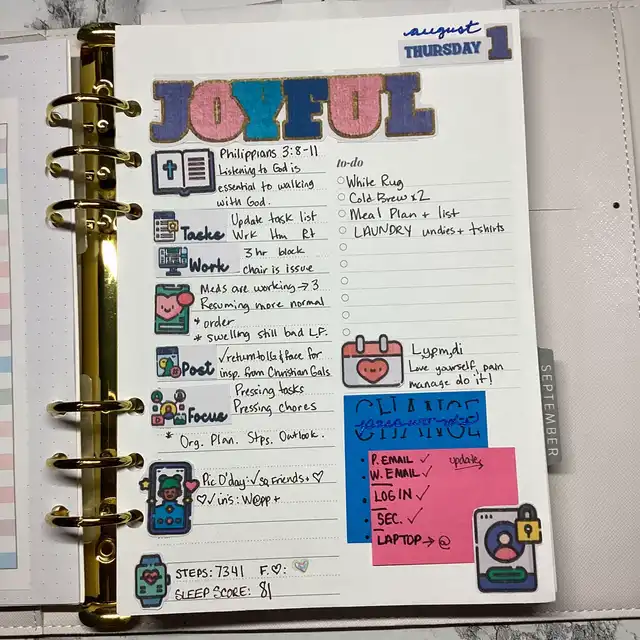 august
THURSDAY 1
JOYFUL
Philippians 3:8-11
Listening to God is
essential to walking
with God.
Tasks Update task list
Wrk Hm Rt
Work 3 hr block
chair is issue
Meds are working → 3
Resuming more normal
* order
* swelling still bad L.F.
Post ✓ return to
insp. from Christian Gals
Focus Pressing tasks
Pressing chores
* Org. Plan. Stps. Outlook.
Pic O'day: ✓ sq Friends + ♡
♡ ✓ in's: W@pp +
STEPS: 7341 F. ♡:
SLEEP SCORE: 81
to-do
White Rug
Cold Brew x2
Meal Plan + list
LAUNDRY undies + tshirts
Love yourself, pain
manage do it!
CHANGE
P. EMAIL ✓ update
W. EMAIL ✓
LOG IN ✓
SEC. ✓
LAPTOP →
SEPTEMBER